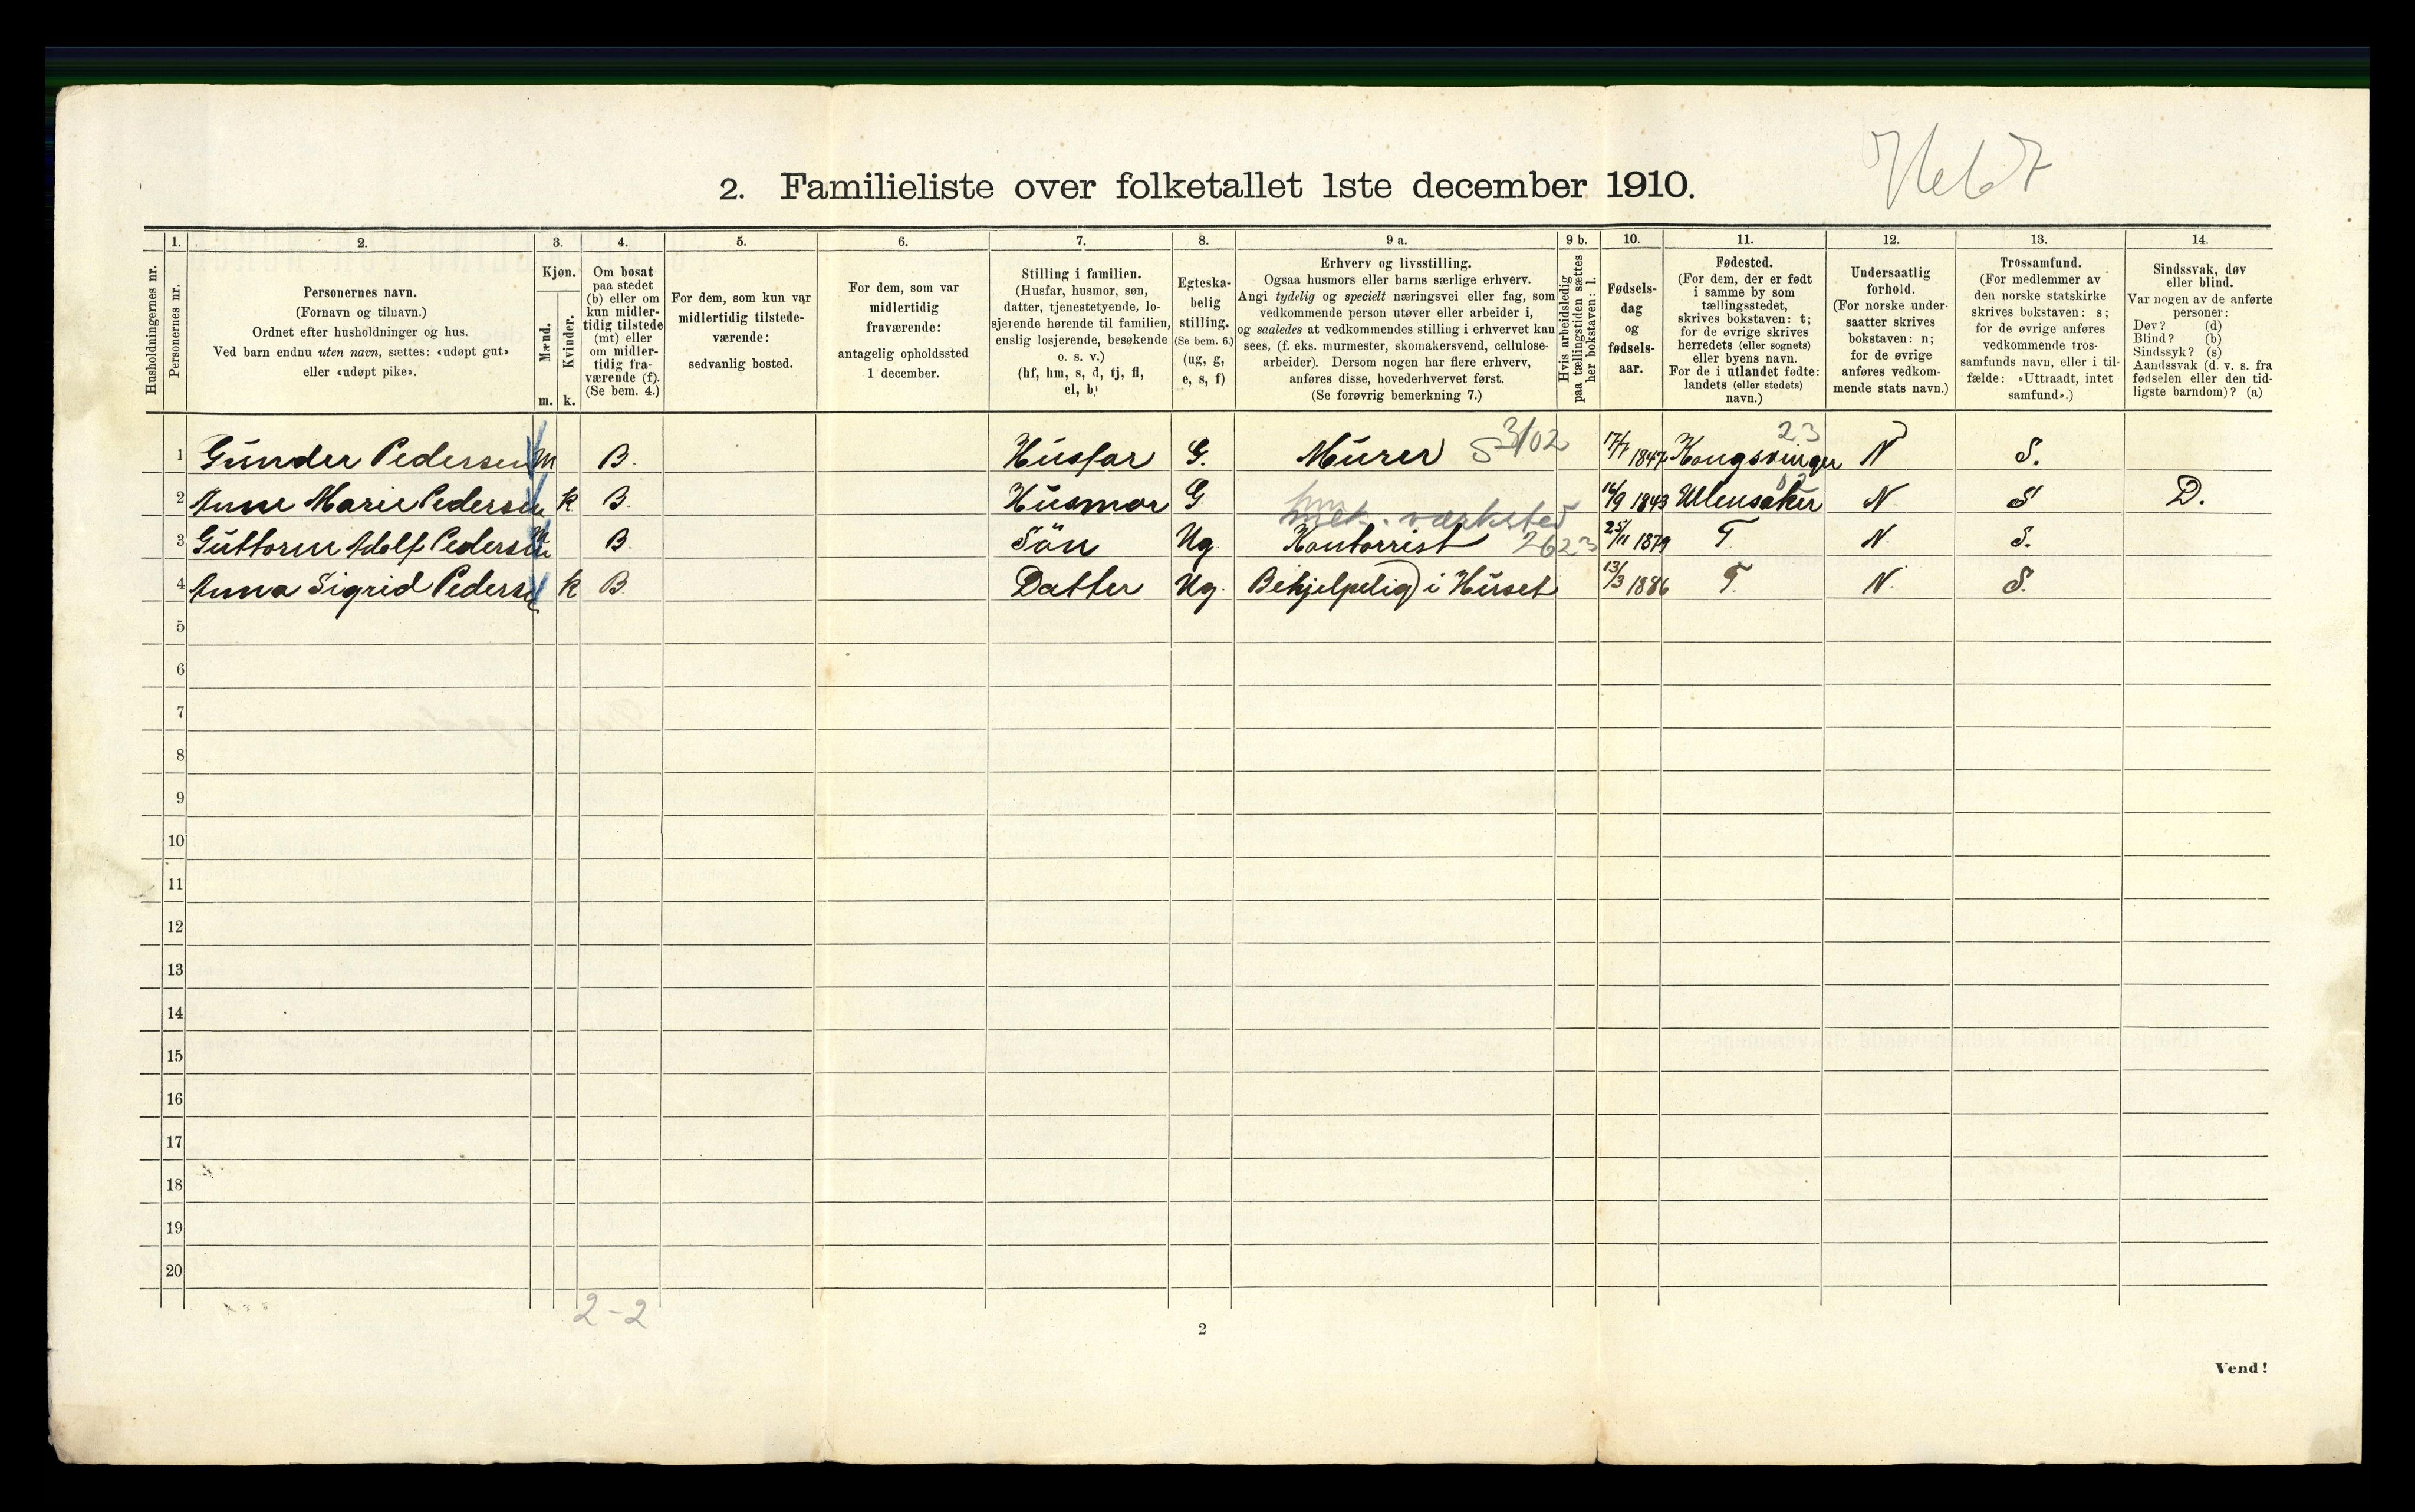 2. Familieliste over folketallet 1ste december 1910.
Husholdningernes nr.
1. Personernes nr.
2. Personernes navn.
(Fornavn og tilnavn.)
Ordnet efter husholdninger og hus.
Ved barn endnu uten navn, sættes: «udøpt gut»
eller «udøpt pike».
3. Kjøn.
Mænd. m.
Kvinder. k.
4. Om bosat
paa stedet
(b) eller om
kun midler-
tidig tilstede
(mt) eller
om midler-
tidig fra-
værende (f).
(Se bem. 4.)
5. For dem, som kun var
midlertidig tilstede-
værende:
sedvanlig bosted.
6. For dem, som var
midlertidig
fraværende:
antagelig opholdssted
1 december.
7. Stilling i familien.
(Husfar, husmor, søn,
datter, tjenestetyende, lo-
sjerende hørende til familien,
enslig losjerende, besøkende
o. s. v.)
(hf, hm, s, d, tj, fl,
el, b)
8. Egteska-
belig
stilling.
(Se bem. 6.)
(ug, g,
e, s, f)
9 a. Erhverv og livsstilling.
Ogsaa husmors eller barns særlige erhverv.
Angi tydelig og specielt næringsvei eller fag, som
vedkommende person utøver eller arbeider i,
og saaledes at vedkommendes stilling i erhvervet kan
sees, (f. eks. murmester, skomakersvend, cellulose-
arbeider). Dersom nogen har flere erhverv,
anføres disse, hovederhvervet først.
(Se forøvrig bemerkning 7.)
9 b. Hvis arbeidsledig
paa tællingstiden sættes
her bokstaven: l.
10. Fødsels-
dag
og
fødsels-
aar.
11. Fødested.
(For dem, der er født
i samme by som
tællingsstedet,
skrives bokstaven: t;
for de øvrige skrives
herredets (eller sognets)
eller byens navn.
For de i utlandet fødte:
landets (eller stedets)
navn.)
12. Undersaatlig
forhold.
(For norske under-
saatter skrives
bokstaven: n;
for de øvrige
anføres vedkom-
mende stats navn.)
13. Trossamfund.
(For medlemmer av
den norske statskirke
skrives bokstaven: s;
for de øvrige anføres
vedkommende tros-
samfunds navn, eller i til-
fælde: «Uttraadt, intet
samfund».)
14. Sindssvak, døv
eller blind.
Var nogen av de anførte
personer:
Døv? (d)
Blind? (b)
Sindssyk? (s)
Aandssvak (d. v. s. fra
fødselen eller den tid-
ligste barndom)? (a)
1 Gunder Pedersen m B. Husfar G. Murer 3/02 17/7 1847 Kongsvinger 23 N S.
2 Anne Marie Pedersen k B. Husmor G 16/9 1843 Ullensaker N. S D.
mek. værksted
3 Guttorm Adolf Pedersen m B. Sön Ug Kontorrist 2623 25/11 1879 T. N. S.
4 Anna Sigrid Pedersen k B. Datter Ug. Behjelpelig i Huset 13/3 1886 T. N. S.
5
6
7
8
9
10
11
12
13
14
15
16
17
18
19
20
2-2
2
Vend!